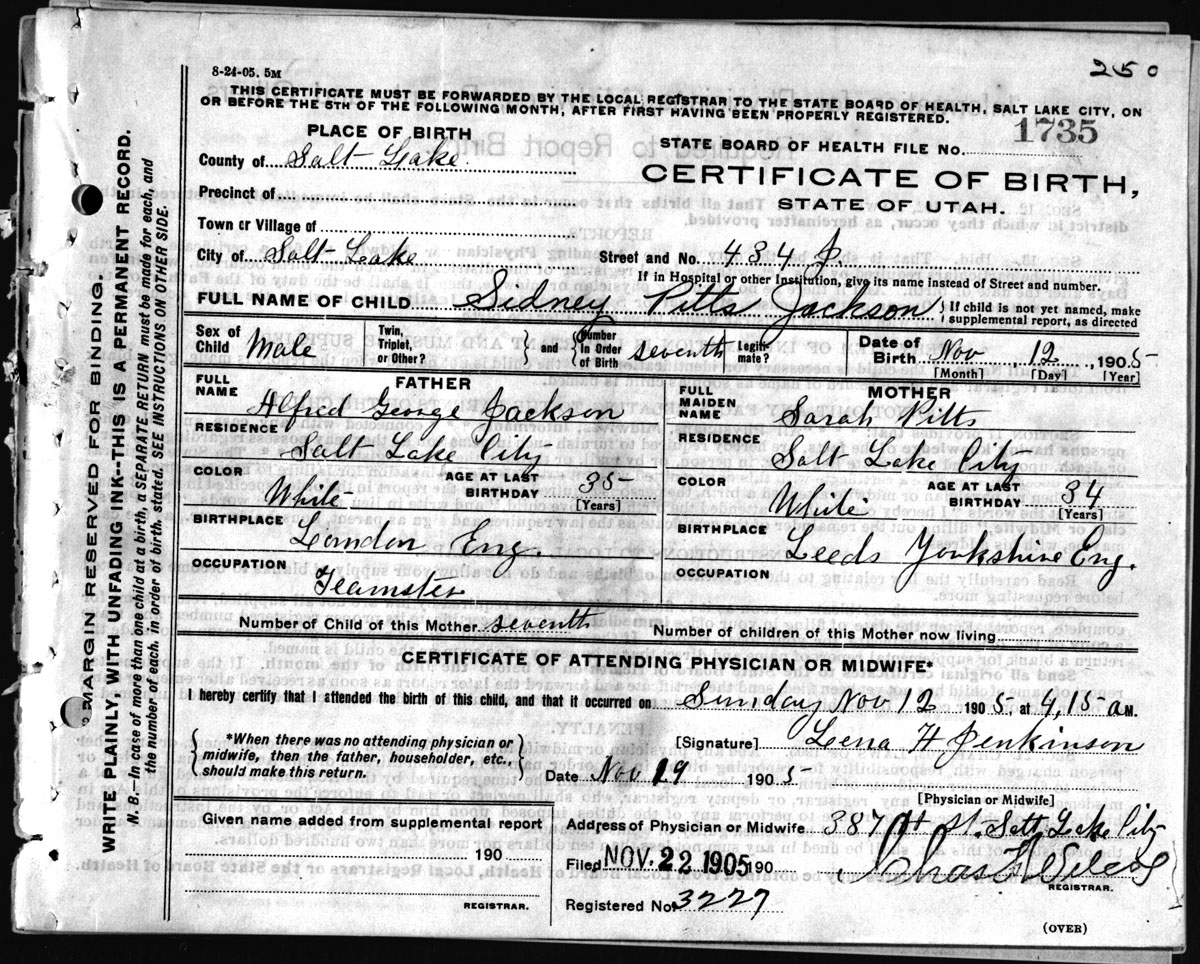 250
8-24-05. 5M
THIS CERTIFICATE MUST BE FORWARDED BY THE LOCAL REGISTRAR TO THE STATE BOARD OF HEALTH, SALT LAKE CITY, ON
OR BEFORE THE 5TH OF THE FOLLOWING MONTH, AFTER FIRST HAVING BEEN PROPERLY REGISTERED.
PLACE OF BIRTH
STATE BOARD OF HEALTH FILE NO. 1735
County of Salt Lake
CERTIFICATE OF BIRTH,
Precinct of
STATE OF UTAH.
Town or Village of
City of Salt Lake Street and No. 434 J.
If in Hospital or other Institution, give its name instead of Street and number.
FULL NAME OF CHILD Sidney Pitts Jackson } If child is not yet named, make supplemental report, as directed
Sex of Child Male Twin, Triplet, or Other? } and { Number in Order of Birth seventh Legiti-mate? Date of Birth Nov 12, 1905
[Month] [Day] [Year]
FATHER
FULL NAME Alfred George Jackson
RESIDENCE Salt Lake City
COLOR White AGE AT LAST BIRTHDAY 35 [Years]
BIRTHPLACE London Eng.
OCCUPATION Teamster
MOTHER
FULL MAIDEN NAME Sarah Pitts
RESIDENCE Salt Lake City
COLOR White AGE AT LAST BIRTHDAY 34 [Years]
BIRTHPLACE Leeds Yorkshire Eng.
OCCUPATION
Number of Child of this Mother seventh Number of children of this Mother now living
CERTIFICATE OF ATTENDING PHYSICIAN OR MIDWIFE*
I hereby certify that I attended the birth of this child, and that it occurred on Sunday Nov 12 1905, at 4,15 AM.
{ *When there was no attending physician or midwife, then the father, householder, etc., should make this return. }
[Signature] Lena H Jenkinson
Date Nov 19 1905
[Physician or Midwife]
Given name added from supplemental report
190
REGISTRAR.
Address of Physician or Midwife 387 St. Salt Lake City
Filed NOV. 22 1905 190 Chas
REGISTRAR.
Registered No. 3227
(OVER)
MARGIN RESERVED FOR BINDING.
WRITE PLAINLY, WITH UNFADING INK--THIS IS A PERMANENT RECORD.
N. B.—In case of more than one child at a birth, a SEPARATE RETURN must be made for each, and
the number of each, in order of birth, stated. SEE INSTRUCTIONS ON OTHER SIDE.